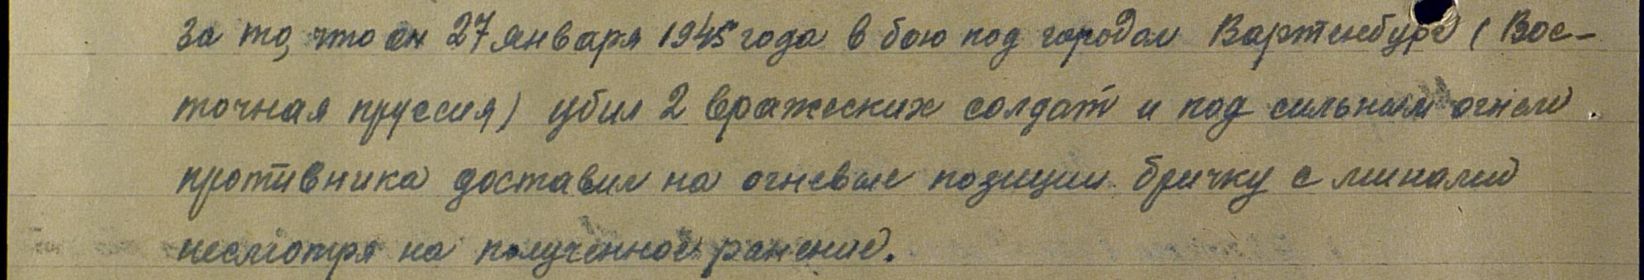 за то, что он 27 января 1945 года в бою под городом Вартенбург (Вос-
точная пруссия) убил 2 вражеских солдат и под сильным огнем
противника доставил на огневые позиции бричку с минами
несмотря на полученное ранение.